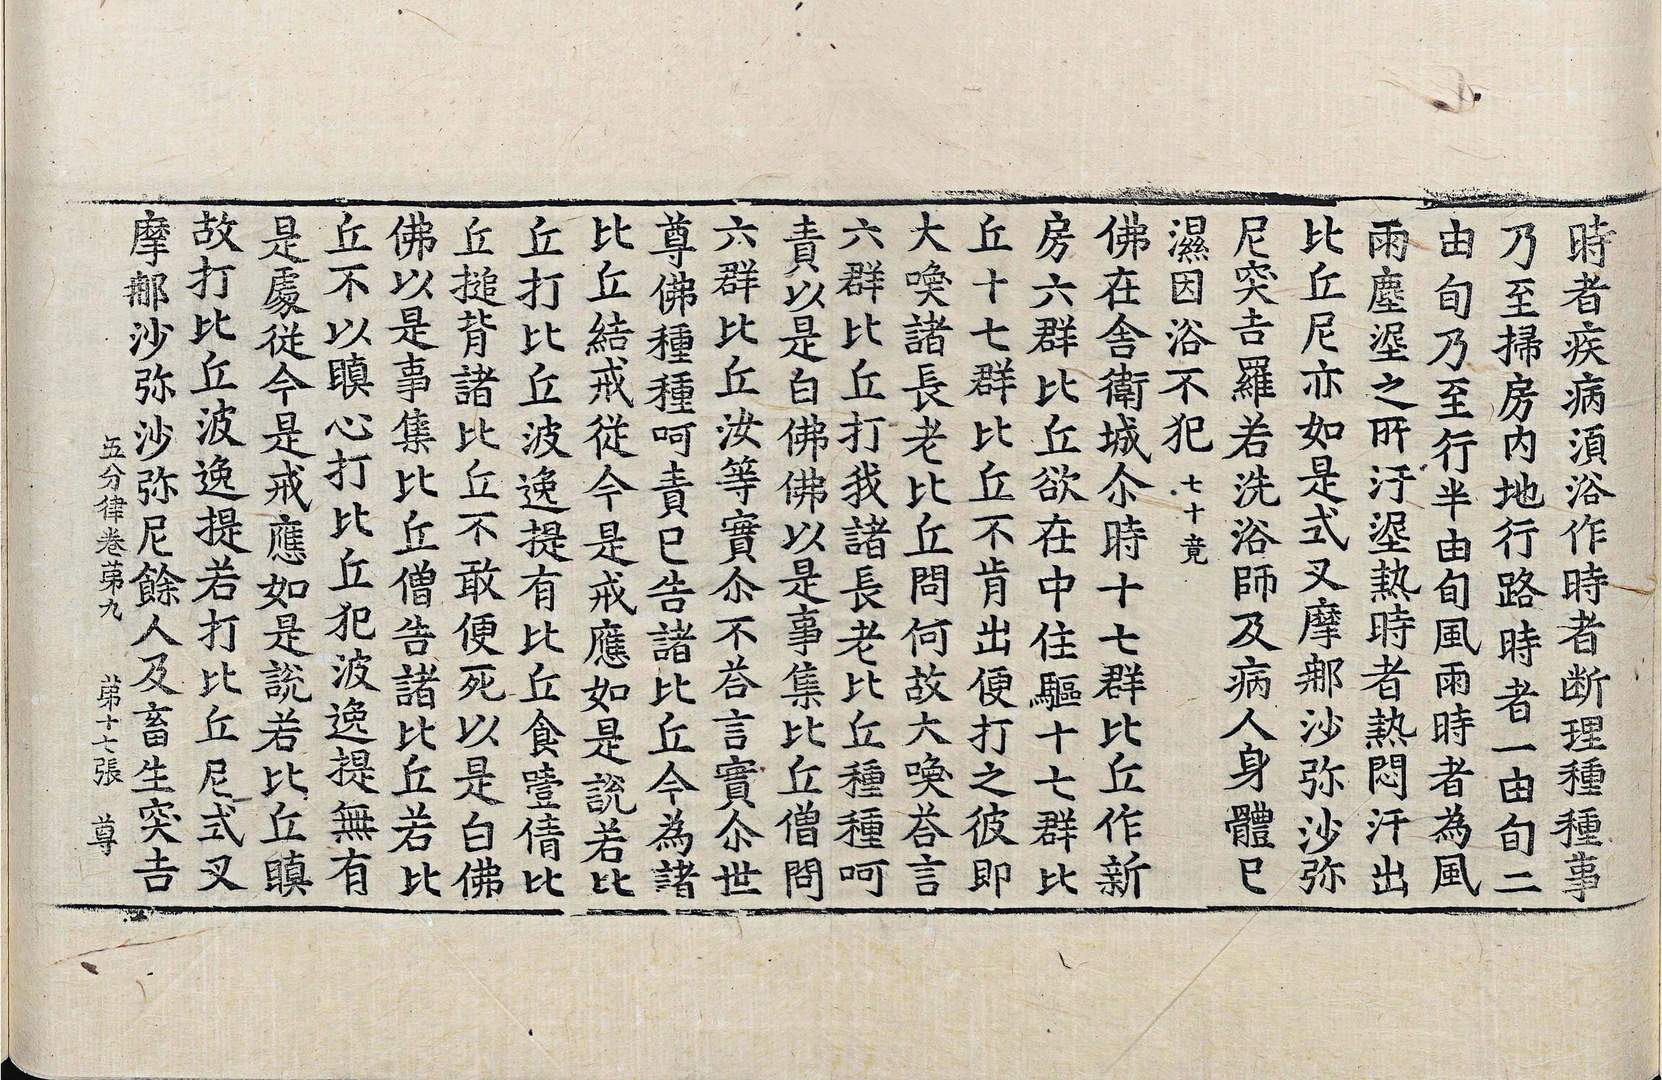 時者疾病湏浴作時者断理種種事
乃至掃房内地行路時者一由旬二
由旬乃至行半由旬風雨時者為風
雨塵埿之所汙埿熱時者熱悶汗出
比丘尼亦如是式叉摩𨙻沙弥沙弥
尼突吉羅若洗浴師及病人身體已
濕因浴不犯 七十竟
佛在舍衛城尒時十七群比丘作新
房六群比丘欲在中住驅十七群比
丘十七群比丘不肯出便打之彼即
大喚諸長老比丘問何故大喚荅言
六群比丘打我諸長老比丘種種呵
責以是白佛佛以是事集比丘僧問
六群比丘汝等實尒不荅言實尒世
尊佛種種呵責已告諸比丘今為諸
比丘結戒従今是戒應如是說若比
丘打比丘波逸提有比丘食噎倩比
丘搥背諸比丘不敢便死以是白佛
佛以是事集比丘僧告諸比丘若比
丘不以瞋心打比丘犯波逸提無有
是處従今是戒應如是說若比丘瞋
故打比丘波逸提若打比丘尼式叉
摩𨙻沙弥沙弥尼餘人及畜生突吉
五分律卷苐九 苐十七張 尊